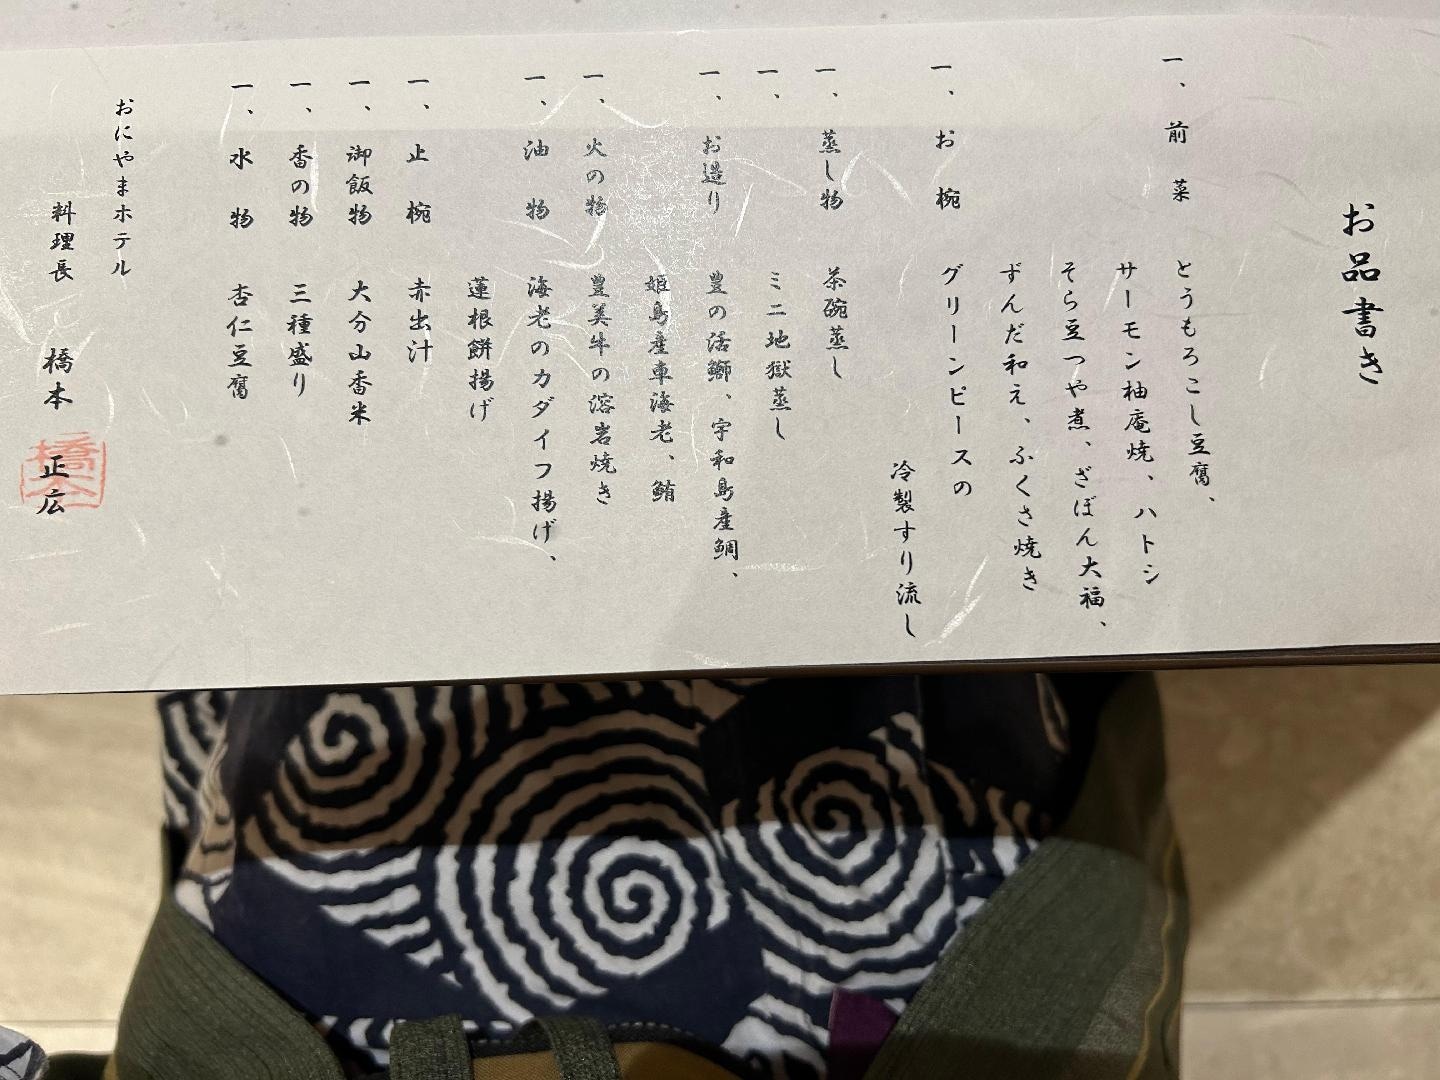 お品書き
一、前菜　とうもろこし豆腐、
サーモン柚庵焼、ハトシ
そら豆つや煮、ざぼん大福、
ずんだ和え、ふくさ焼き
一、お椀　グリーンピースの
冷製すり流し
一、蒸し物　茶碗蒸し
一、ミニ地獄蒸し
一、お造り　豊の活鰤、宇和島産鯛、
姫島産車海老、鮪
一、火の物　豊美牛の溶岩焼き
一、油物　海老のカダイフ揚げ、
蓮根餅揚げ
一、止椀　赤出汁
一、御飯物　大分山香米
一、香の物　三種盛り
一、水物　杏仁豆腐
おにやまホテル
料理長　橋本　正広